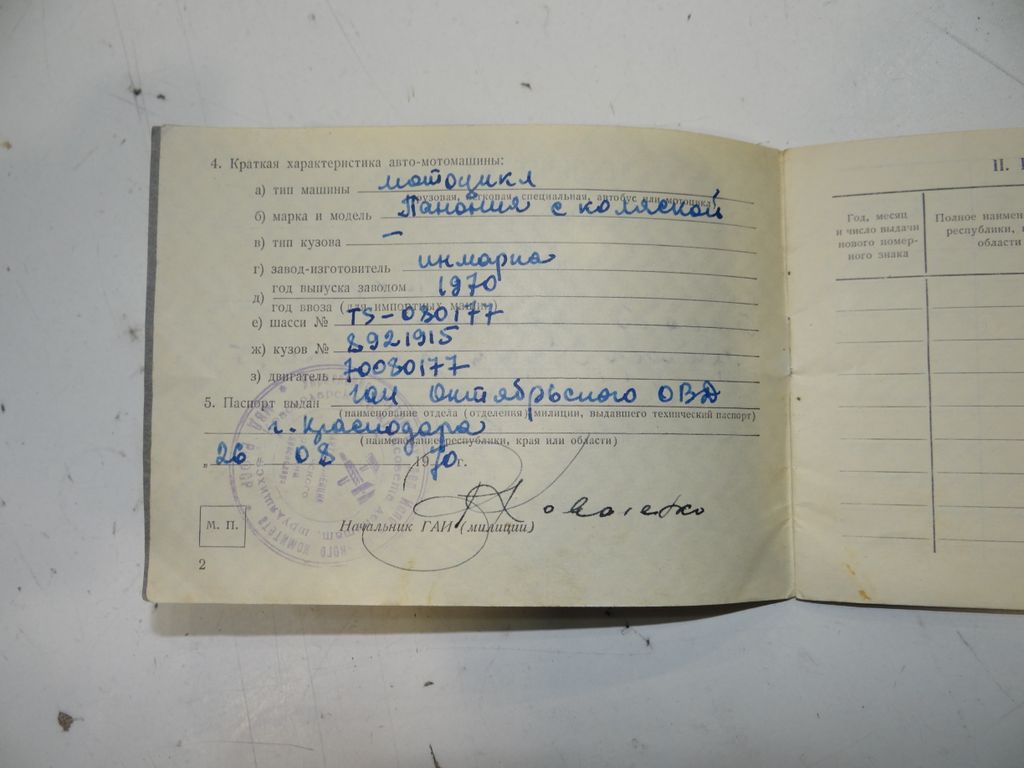 4. Краткая характеристика авто-мотомашины:
а) тип машины мотоцикл
грузовая, легковая, специальная, автобус или мотоцикл
б) марка и модель Панония с коляской
в) тип кузова —
г) завод-изготовитель инмарка
д) год выпуска заводом 1970
год ввоза (для импортных машин)
е) шасси № TS-080177
ж) кузов № 8921915
з) двигатель 70080177
5. Паспорт выдан ГАИ Октябрьского ОВД
(наименование отдела (отделения) милиции, выдавшего технический паспорт)
г. Краснодара
(наименование республики, края или области)
„ 26 08 1970 г.
М. П.
Начальник ГАИ (милиции)
2
II.
Год, месяц
и число выдачи
нового номер-
ного знака
Полное наимен
республики,
области